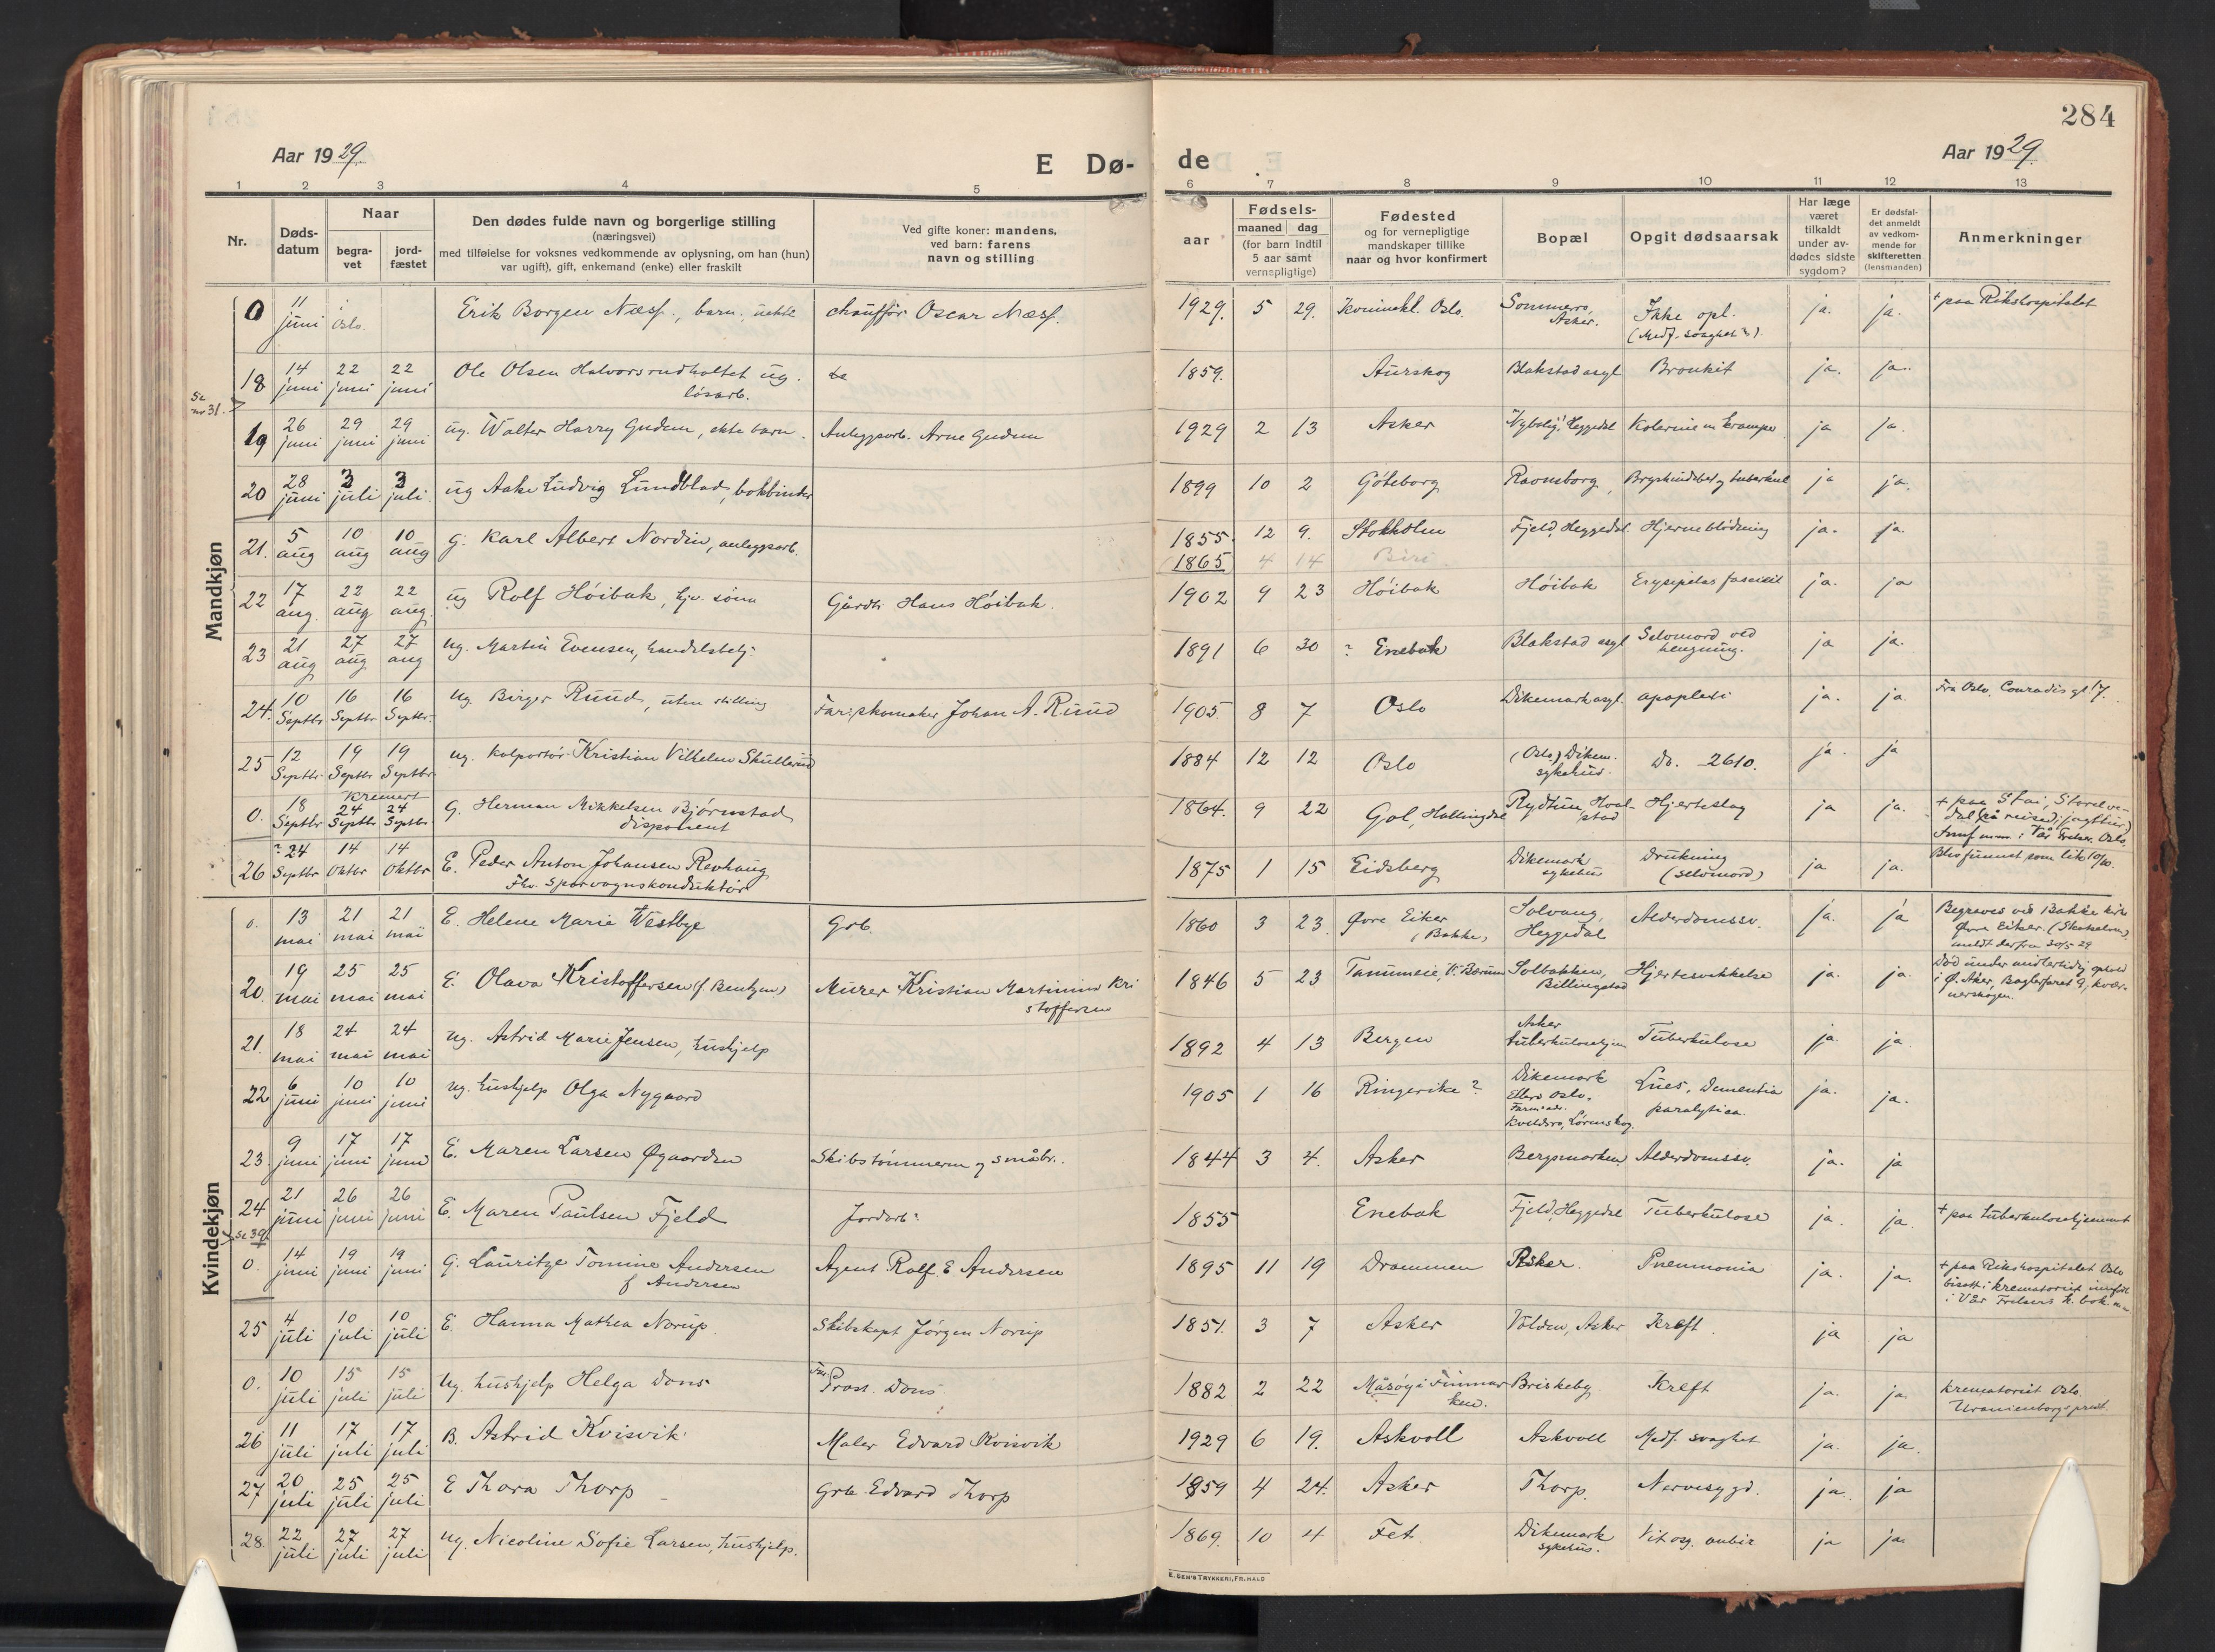 284
Aar 1929.
E Dø-
de
Aar 1929.
1 2 3 4 5 6 7 8 9 10 11 12 13
Nr.
Døds-
datum
Naar
begra-
vet
jord-
fæstet
Den dødes fulde navn og borgerlige stilling
(næringsvei)
med tilføielse for voksnes vedkommende av oplysning, om han (hun)
var ugift), gift, enkemand (enke) eller fraskilt
Ved gifte koner: mandens,
ved barn: farens
navn og stilling
aar
Fødsels-
maaned dag
(for barn indtil
5 aar samt
vernepligtige)
Fødested
og for vernepligtige
mandskaper tillike
naar og hvor konfirmert
Bopæl
Opgit dødsaarsak
Har læge
været
tilkaldt
under av-
dødes sidste
sygdom?
Er dødsfal-
det anmeldt
av vedkom-
mende for
skifteretten
(lensmanden)
Anmerkninger
Mandkjøn
0 11 juni Oslo. Erik Borgen Næss., barn, chauffør Oscar Næss. 1929. 5 29. Oslo. Sommerro, Asker. Ikke opl. (Medf. svaghet?) ja. ja. + paa Rikshospitalet
18 14 juni 22 juni 22 juni Ole Olsen Halvorsrudholtet ug. løsarb. 1859. Aurskog Blakstad asyl Bronkit ja. ja.
Se nr 31.
19 26 juni 29 juni 29 juni ug. Walter Harry Gudem, ekte barn. Anleggsarb. Arne Gudem 1929 2 13 Asker Heggedal Kolerine m. kramper ja ja.
20 28 juni 3 juli 3 juli. ug Aake Ludvig Lundblad, bokbinder 1899 10 2 Göteborg Ravnsborg, ja ja.
21. 5 aug 10 aug 10 aug g. Karl Albert Nordin, anleggsarb. 1855. 12 9. Stokholm Fjeld, Heggedal Hjerneblødning ja. ja.
1865 4 14 Biri
22 17 aug. 22 aug 22 aug. ug Rolf Høibak, hjv. sønn Gårdbr. Hans Høibak. 1902 9 23 Høibak Høibak Erysipelas ja. ja
23 21 aug 27 aug 27 aug ug. Martin Evensen, handelsbetj. 1891 6 30 ? Enebak Blakstad asyl Selvmord ved hengning. ja ja.
24. 10 Septbr. 16 Septbr. 16 Septbr. ug. Birger Ruud, uten stilling Far: skomaker Johan A. Ruud 1905. 8 7 Oslo Dikemark asyl. apoplexi ja. ja Fra Oslo, Conradis gt 17.
25 12 Septbr. 19 Septbr. 19 Septbr. ug. kolportør Kristian Vilhelm Skullerud 1884 12 12 Oslo (Oslo) Dikem. sykehus. Do. 2610. ja. ja
0. 18 Septbr kremert 24 Septbr 24 Septbr. G. Herman Mikkelsen Bjørnstad disponent 1864. 9 22 Gol, Hallingdal Rydtun, Hvalstad Hjerteslag ja ja. + paa Stai, Storelvedal (på reise, jagttur.) i Vår Frelser. Oslo.
26 ? 24 Septbr 14 Oktbr 14 Oktbr E. Peder Anton Johansen Revhaug Fhv. sporvognskonduktør 1875 1 15 Eidsberg Dikemark sykehus Drukning (selvmord) ja ja. Blev funnet som lik 10/10.
Kvindekjøn
0. 13 mai 21 mai 21 mai E. Helene Marie Westbye Grb. 1860 3 23. Øvre Eiker (Bakke) Solvang, Heggedal Alderdomssv. ja. ja Begraves ved Bakke kirke Øvre Eiker. meldt derfra 30/5 29
20. 19 mai 25 mai 25 mai E. Olava Kristoffersen (f. Bentzen) Murer Kristian Martinius Kristoffersen 1846 5 23 Tanumeie, V. Bærum Solbakken, Billingstad Hjertesvækkelse ja. ja. Død under midlertidig ophold i Ø. Aker, Baglerfaret 9, Kværnerskogen.
21. 18 mai 24 mai 24 mai ug. Astrid Marie Jensen, hushjelp 1892 4 13 Bergen Asker tuberkulosehjem Tuberkulose ja. ja
22 6 juni 10 juni 10 juni ug. hushjelp Olga Nygaard 1905 1 16 Ringerike ? Dikemark Ellers Oslo. Kveldsro, Lørenskog. Lues, Dementia paralytica. ja. ja.
23. 9 juni 17 juni 17 juni E. Maren Larsen Øgaarden Skibstømmerm. og småbr. 1844 3 4. Asker Bergsmarken. Alderdomssv. ja. ja
24 21 juni 26 juni 26 juni E. Maren Paulsen Fjeld Jordarb. 1855 Enebak Fjeld, Heggedal Tuberkulose ja. ja. + paa tuberkulosehjemmet
Se 39
0. 14 juni 19 juni 19 juni G. Lauritze Tomine Andersen f Andersen Agent Rolf E. Andersen 1895 11 19 Drammen Asker. Pneumonia ja. ja. + paa Rikshospitalet Oslo bisatt i krematoriet innført i Vår Frelsers k. bok.
25 4 juli 10 juli 10 juli E. Hanna Mathea Norup. Skibskapt Jørgen Norup 1851. 3 7 Asker Volden, Asker Kreft. ja ja
0. 10 juli 15 juli 15 juli ug. hushjelp Helga Dons Far. Prost. Dons. 1882 2 22 Måsøy i Finnmarken. Briskeby Kreft ja. ja. krematoriet Oslo. Uranienborg prest.
26 11 juli 17 juli 17 juli B. Astrid Kvisvik Maler Edvard Kvisvik 1929 6 19. Askvoll Askvoll Medf. svaghet ja. ja.
27 20 juli 25 juli 25 juli E Thora Thorp Grb. Edvard Thorp 1859 4 24. Asker Thorp. Nervesygd. ja. ja
28. 22 juli 27 juli 27 juli ug. Nicoline Sofie Larsen, hushjelp. 1869. 10 4 Fet Dikemark sykehus. ja ja
E. SEM'S TRYKKERI, FR.HALD